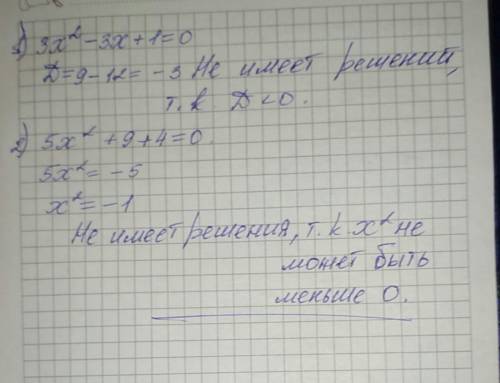 1) 3x² - 3x + 1 = 0
D = 9 - 12 = -3 Не имеет решений,
т.к D < 0.
2) 5x² + 9 + 4 = 0.
5x² = -5
x² = -1
Не имеет решения, т.к x² не
может быть
меньше 0.